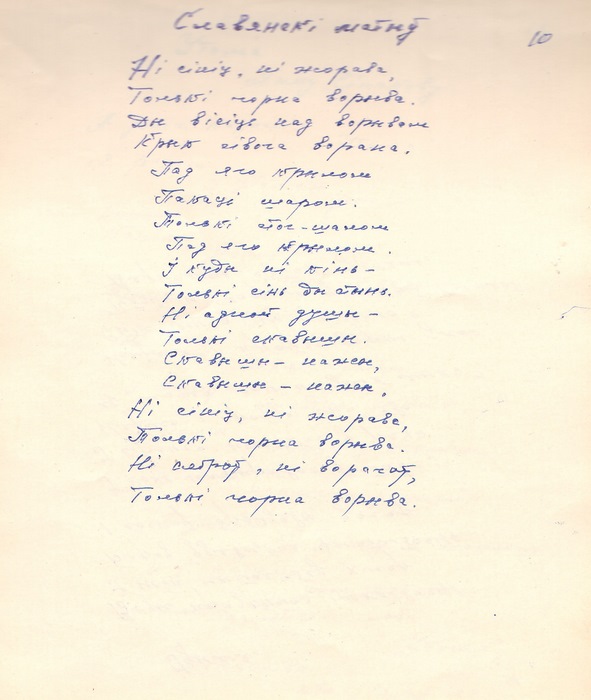 Славянскі матыў
10
Ні сініц, ні жорава,
Толькі чорна ворыва.
Ды вісіць над ворывам
Крык сівога ворана.
Пад яго крылом
Пакаці шаром.
Толькі стог-шалом
Пад яго крылом.
І куды ні кінь –
Толькі сінь ды стынь.
Ні адной душы –
Толькі спарышы.
Спарышы – нажок,
Спарышы – нажок,
Ні сініц, ні жорава,
Толькі чорна ворыва.
Ні сяброў, ні ворагаў,
Толькі чорна ворыва.